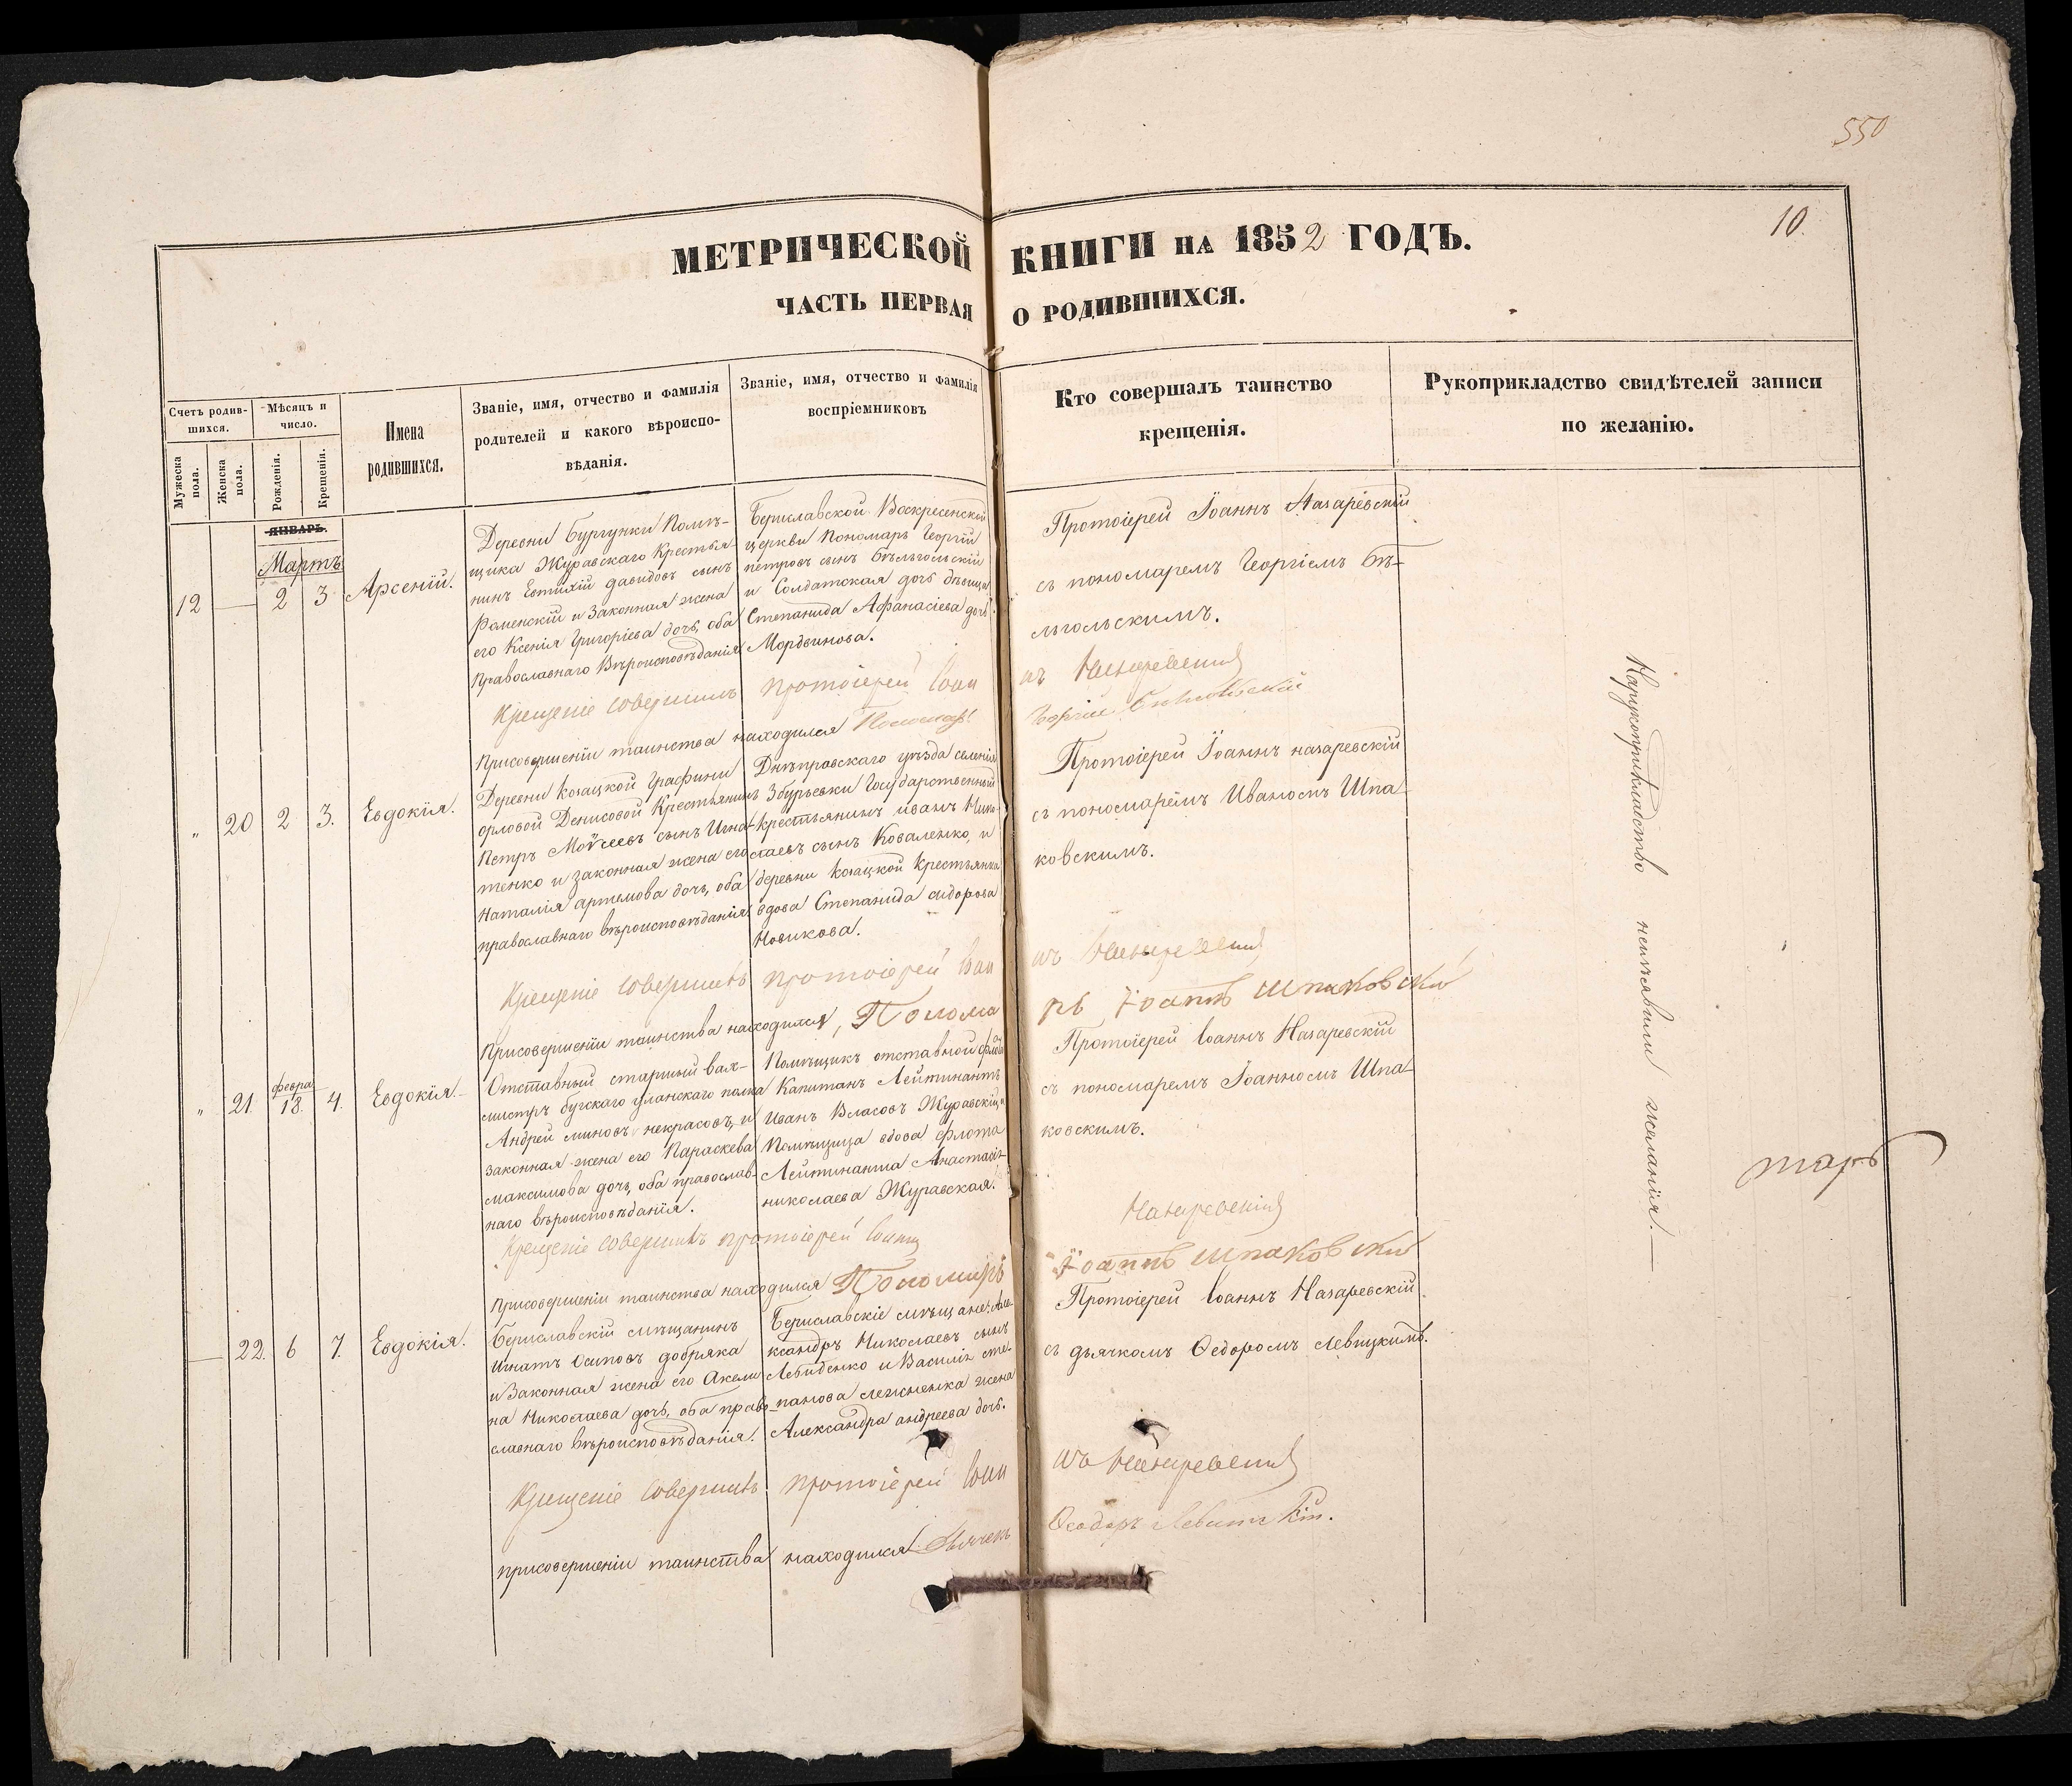 550
10.
МЕТРИЧЕСКОЙ КНИГИ НА 1852 ГОДЪ.
ЧАСТЬ ПЕРВАЯ О РОДИВШИХСЯ.
Счетъ родив-
шихся.
Мужеска пола.
Женска пола.
Мѣсяцъ и
число.
Рожденія.
Крещенія.
Имена
родившихся.
Званіе, имя, отчество и фамилія
родителей и какого вѣроиспо-
вѣданія.
Званіе, имя, отчество и фамилія
воспріемниковъ
Кто совершалъ таинство
крещенія.
Рукоприкладство свидѣтелей записи
по желанію.
ЯНВАРЬ.
Мартъ
12 — 2 3 Арсеній.
Деревни Бургунки Помѣ-
щика Журавскаго Крестья-
нинъ Евтихій давидовъ сынъ
Роменскій и Законная жена
его Ксенія Григоріева дочь, оба
Православнаго Вѣроисповѣданія
Бериславской Воскресенской
церкви Пономарь Георгій
петровъ сынъ Бѣльгольскій
и Солдатская дочь дѣвица
Степанида Афанасіева дочь
Мордвинова.
Протоіерей Іоаннъ Назаревскій
съ пономаремъ Георгіемъ Бѣ-
льгольскимъ.
Крещеніе совершилъ протоіерей Іоан
нъ Назаревскій
Присовершеніи таинства находился Пономарь
Георгій Бѣльгольскій
„ 20 2 3. Евдокія.
Деревни козацкой Графини
орловой Денисовой Крестьянинъ
Петръ Моѵсеевъ сынъ Игна-
тенко и законная жена его
Наталія артемова дочь, оба
православнаго вѣроисповѣданія.
Днѣпровскаго уѣзда селенія
Збурьевки Государственный
крестьянинъ иванъ Нико-
лаевъ сынъ Коваленко, и
деревни козацкой крестьянка
вдова Степанида сидорова
Новикова.
Протоіерей Іоаннъ назаревскій
съ пономаремъ Иваномъ Шпа-
ковскимъ.
Крещеніе совершилъ протоіерей Іоан
нъ Назаревскій
Присовершеніи таинства находился, Понома
рь Іоаннъ Шпаковскій
„ 21. февра. 18. 4. Евдокія.
Отставный старшый вах-
мистръ бугскаго уланскаго полка
Андрей миновъ некрасовъ, и
законная жена его Параскева
максимова дочь, оба православ-
наго вѣроисповѣданія.
Помѣщикъ отставной флота
Капитанъ Лейтинантъ
Иванъ Власовъ Журавскій, и
Помѣщица вдова флота
Лейтинанта Анастасія
николаева Журавская.
Протоіерей Іоаннъ Назаревскій
съ пономаремъ Іоанномъ Шпа-
ковскимъ.
Крещеніе совершилъ протоіерей Іоаннъ
Назаревскій
Присовершеніи таинства находился Пономарь
Іоаннъ Шпаковскій
— 22. 6 7. Евдокія.
Бериславскій мѣщанинъ
Игнатъ Осиповъ добряка
и Законная жена его Акели-
на Николаева дочь, оба право-
славнаго вѣроисповѣданія.
Бериславскіе мѣщане: Але-
ксандръ Николаевъ сынъ
Лебиденко и Василія сте-
панова лежненка жена
Александра андреева дочь.
Протоіерей Іоаннъ Назаревскій
съ дьячкомъ Ѳедоромъ Левицкимъ.
Крещеніе совершилъ протоіерей Іоан
нъ Назаревскій
присовершеніи таинства находился Дьячекъ
Ѳеодоръ Левитскій.
Нарукоприкладство неизъявили желанія.—
тарь